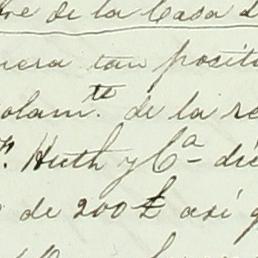 de la Casa d
nera tan posit
olam.te de la re
Huth y Ca- di
de 200 £ así q